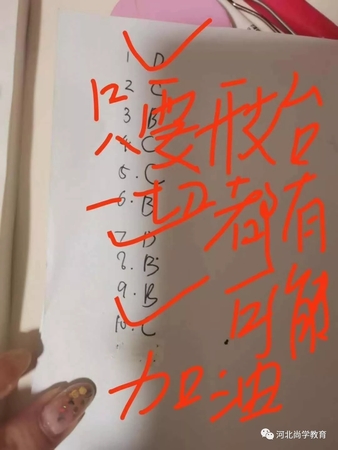 1 D
2 C
3 B
4 C
5. C
6. B
7. D
8. B
9. B
10. C
只要开始
一切都有
可能
加油
河北尚学教育